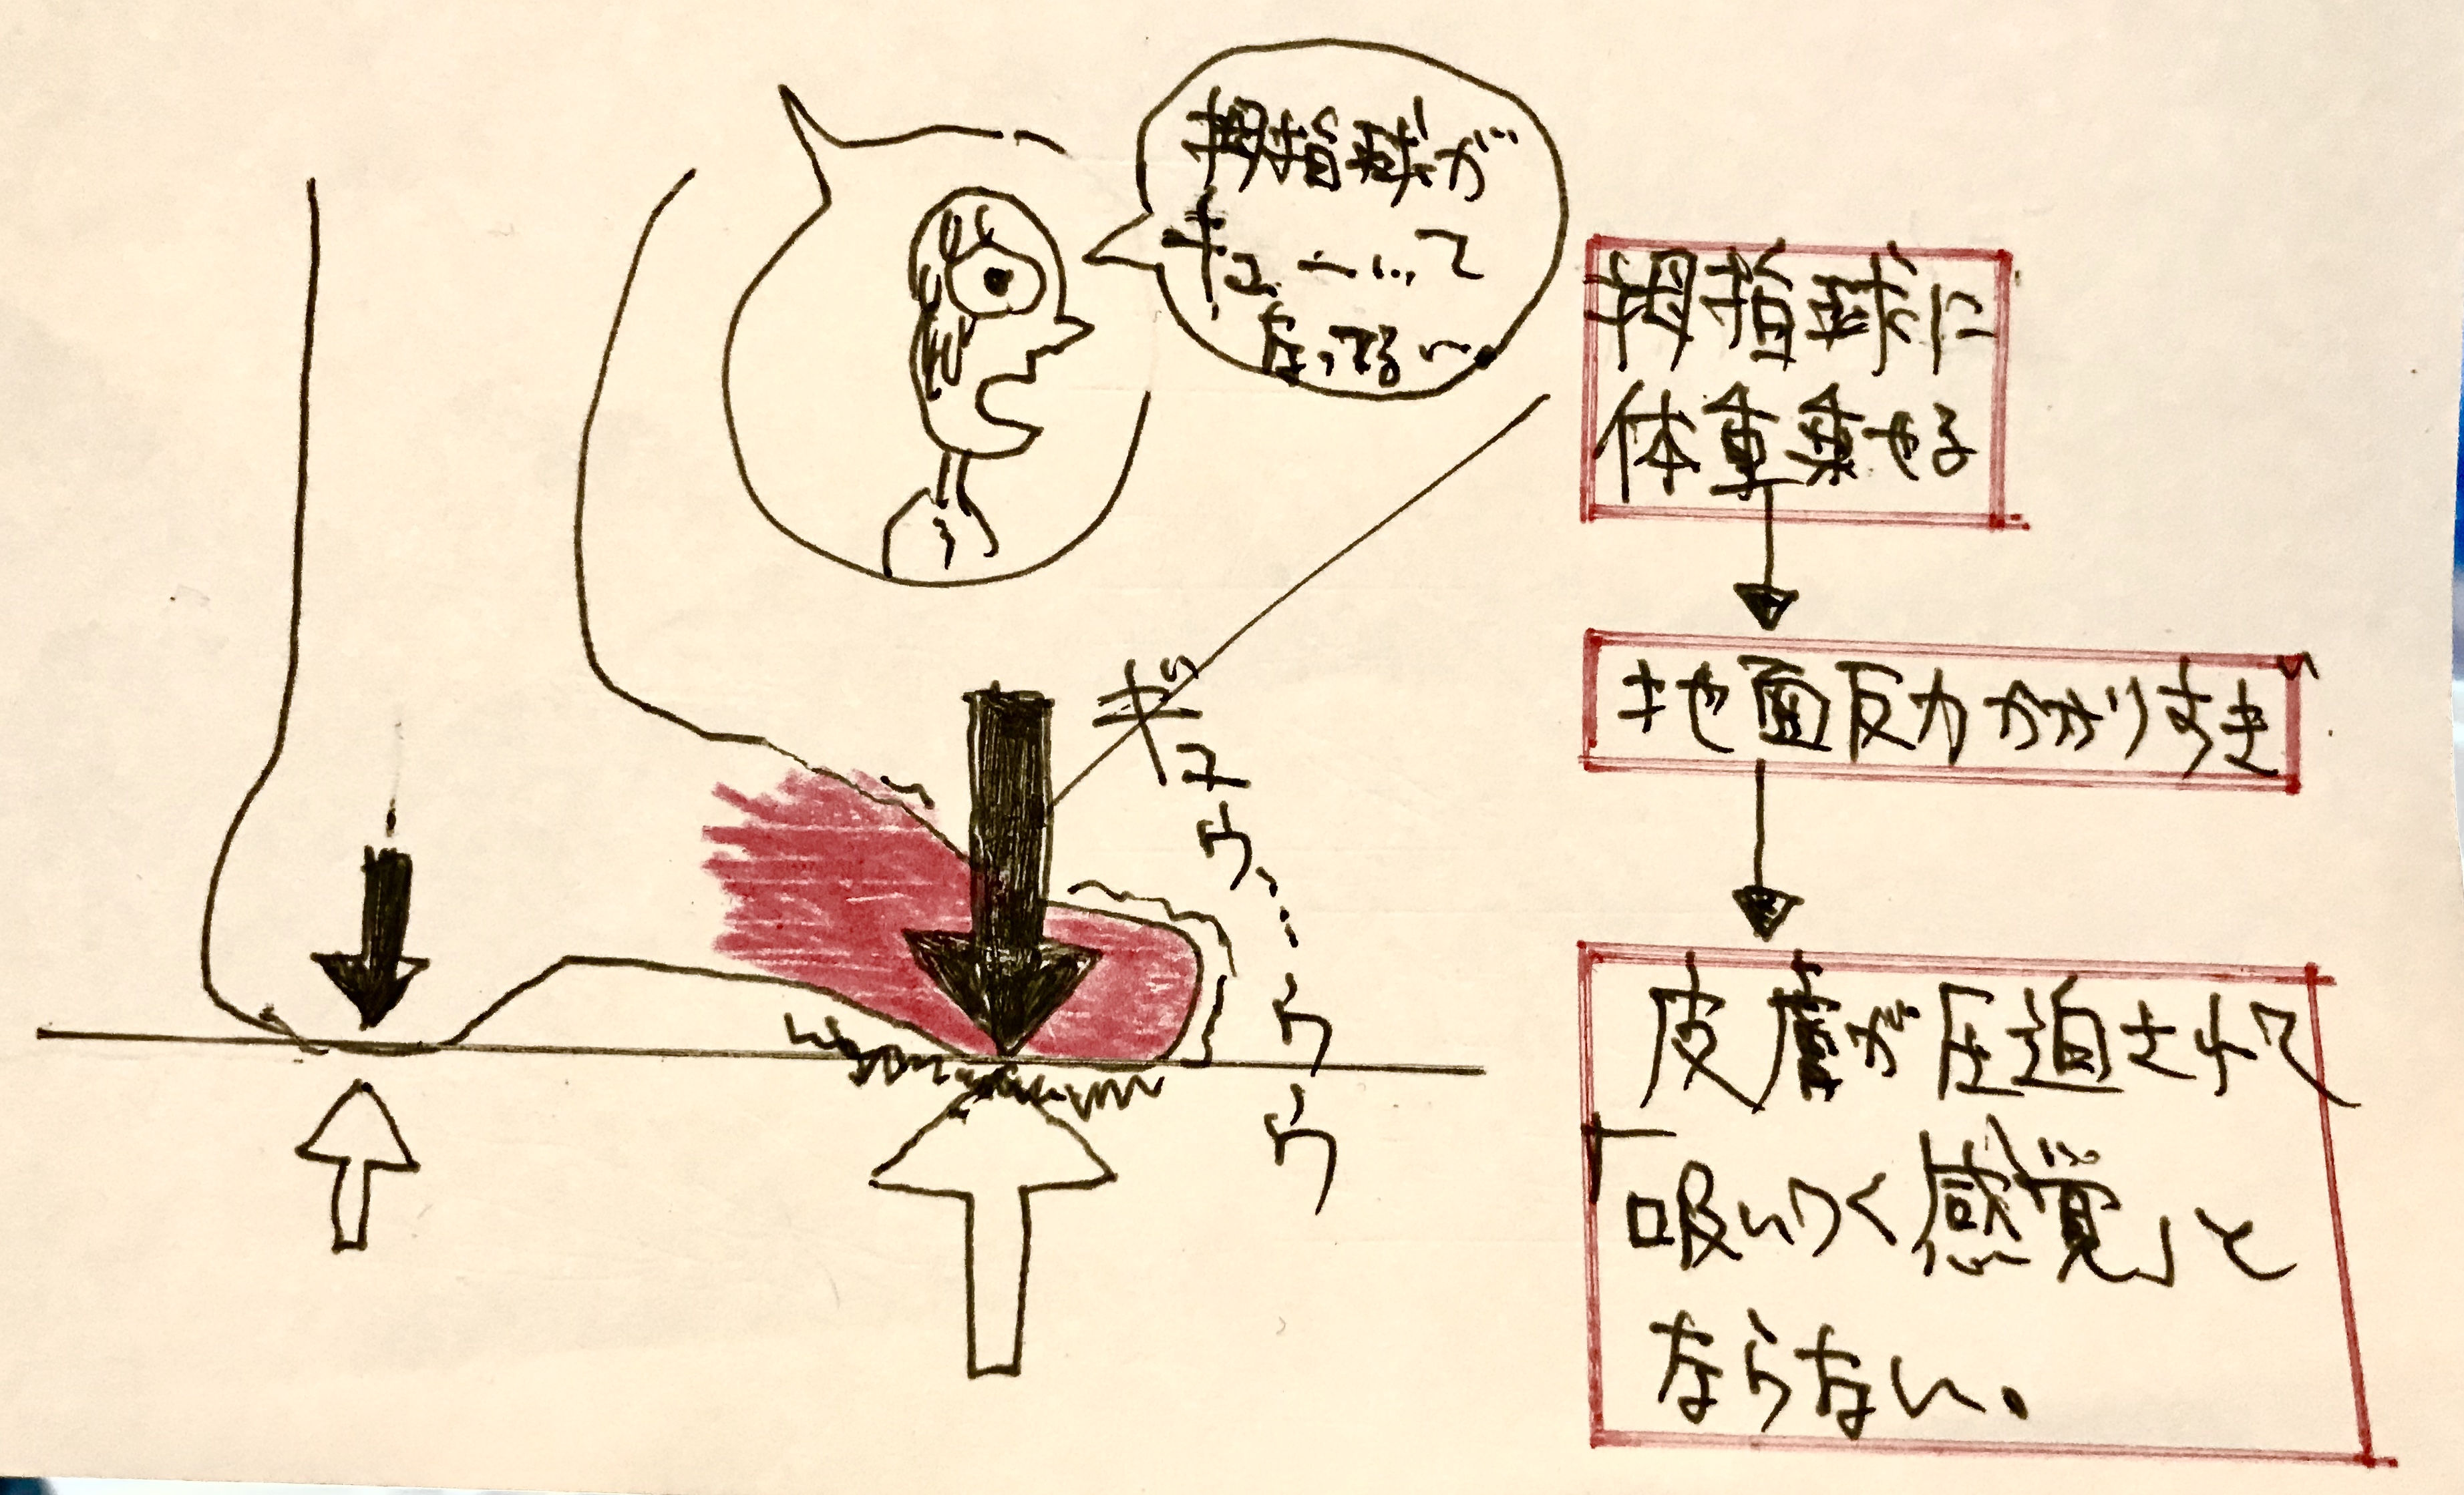 拇指球が
ギューって
なってる〜
ギュウ…ウウ
拇指球に
体重乗せる
地面反力かかりすぎ
皮膚が圧迫されて
「吸いつく感覚」と
ならない。